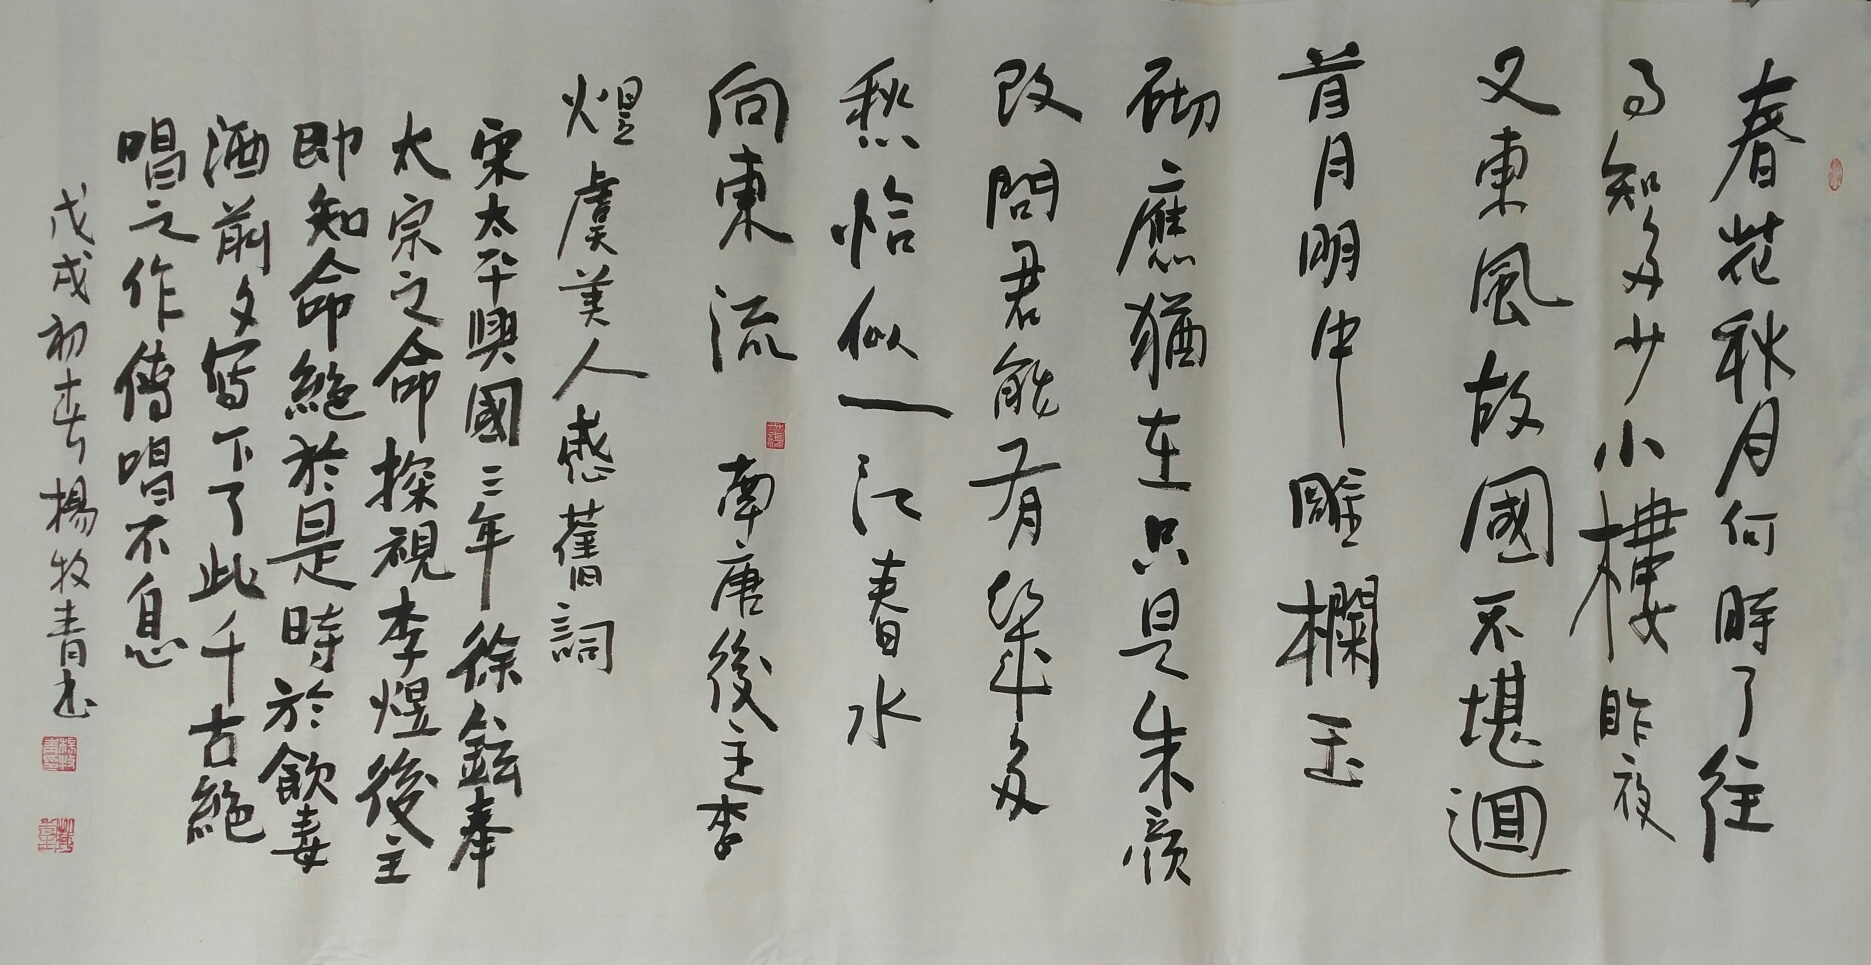 春花秋月何時了往
事知多少小樓昨夜
又東風故國不堪迴
首月明中雕欄玉
砌應猶在只是朱顏
改問君能有幾多
愁恰似一江春水
向東流 南唐後主李
煜虞美人感舊詞
宋太平興國三年徐鉉奉
太宗之命探視李煜後主
即知命絕於是時於飲毒
酒前夕寫下了此千古絕
唱之作傳唱不息
戊戌初春楊牧青書